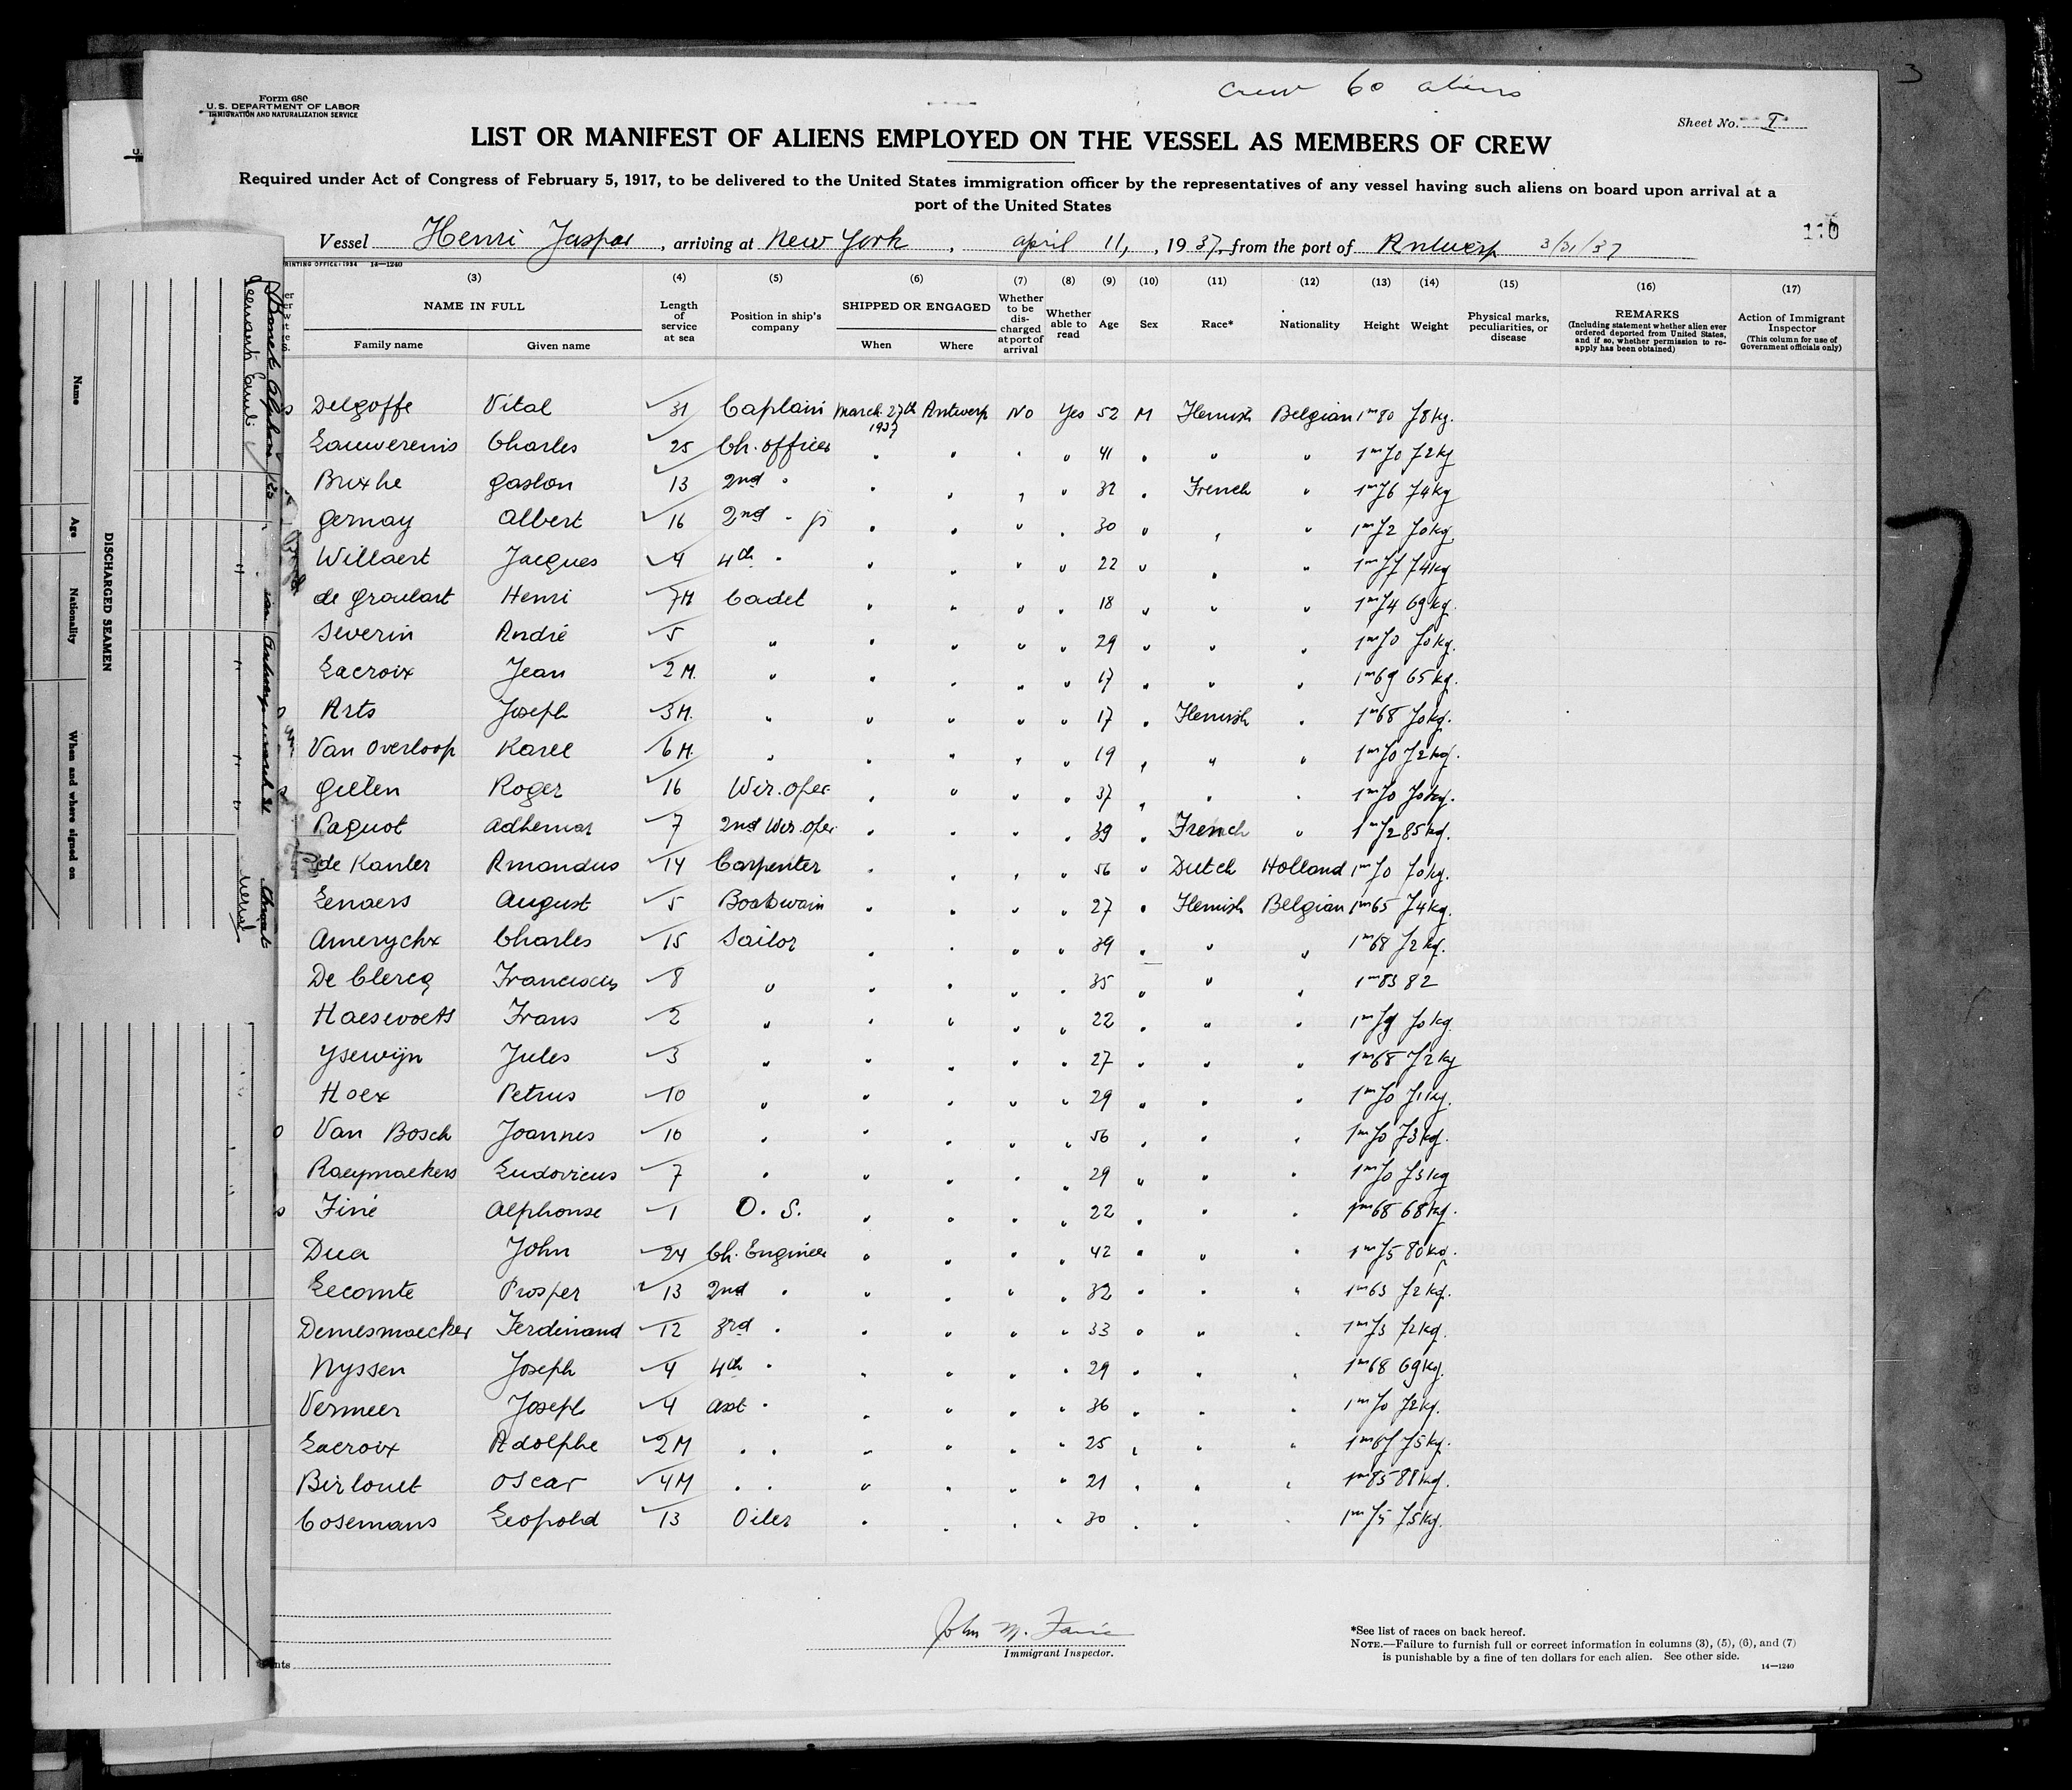 crew 60 aliens
3
Form 680
U.S. DEPARTMENT OF LABOR
IMMIGRATION AND NATURALIZATION SERVICE
Sheet No. I
LIST OR MANIFEST OF ALIENS EMPLOYED ON THE VESSEL AS MEMBERS OF CREW
Required under Act of Congress of February 5, 1917, to be delivered to the United States immigration officer by the representatives of any vessel having such aliens on board upon arrival at a
port of the United States
110
Vessel Henri Jaspar, arriving at New York, april 11, 1937, from the port of Antwerp 3/31/37
PRINTING OFFICE: 1934 14—1240
(3) (4) (5) (6) (7) (8) (9) (10) (11) (12) (13) (14) (15) (16) (17)
NAME IN FULL
Family name Given name
Length of service at sea
Position in ship's company
SHIPPED OR ENGAGED
When Where
Whether to be discharged at port of arrival
Whether able to read
Age Sex Race* Nationality Height Weight
Physical marks, peculiarities, or disease
REMARKS
(Including statement whether alien ever ordered deported from United States, and if so, whether permission to reapply has been obtained)
Action of Immigrant Inspector
(This column for use of Government officials only)
Delgoffe Vital 31 Captain March 27th 1937 Antwerp No Yes 52 M Flemish Belgian 1m80 78kg.
Lauwereins Charles 25 Ch. officer " " " " 41 " " " 1m70 72kg
Bruxhe gaston 13 2nd " " " " " 32 " French " 1m76 74kg
gernay albert 16 2nd " " " " " 30 " " " 1m72 70kg.
Willaert Jacques 4 4th " " " " " 22 " " " 1m77 74kg
de groulart Henri 7M Cadet " " " " 18 " " " 1m74 69kg.
Severin André 5 " " " " " 29 " " " 1m70 70kg.
Lacroix Jean 2M. " " " " " 17 " " " 1m69 65kg.
Arts Joseph 3M. " " " " " 17 " Flemish " 1m68 70kg.
Van Overloop Karel 6M. " " " " " 19 " " " 1m70 72kg.
gielen Roger 16 Wir. oper. " " " " 37 " " " 1m70 70kg.
Paquot adhemar 7 2nd Wir. oper " " " " 39 " French " 1m72 85kg.
de Kanter Armandus 14 Carpenter " " " " 56 " Dutch Holland 1m70 70kg.
Lenaers august 5 Boatswain " " " " 27 " Flemish Belgian 1m65 74kg.
Amerychx Charles 15 Sailor " " " " 39 " " " 1m68 72kg.
De Clercq Franciscus 8 " " " " " 35 " " " 1m83 82
Haesevoets Frans 2 " " " " " 22 " " " 1m79 70kg.
Ysewijn Jules 3 " " " " " 27 " " " 1m68 72kg
Hoex Petrus 10 " " " " " 29 " " " 1m70 71kg.
Van Bosch Joannes 10 " " " " " 56 " " " 1m70 73kg.
Raeymaekers Ludovicus 7 " " " " " 29 " " " 1m70 73kg
Finé Alphonse 1 O. S. " " " " 22 " " " 1m68 68kg.
Dua John 24 Ch. Engineer " " " " 42 " " " 1m75 80kg.
Lecomte Prosper 13 2nd " " " " " 32 " " " 1m63 72kg.
Demesmaecker Ferdinand 12 3rd " " " " " 33 " " " 1m73 72kg.
Nyssen Joseph 4 4th " " " " " 29 " " " 1m68 69kg.
Vermeer Joseph 4 asst " " " " " 36 " " " 1m70 72kg.
Lacroix Adolphe 2M " " " " " " 25 " " " 1m67 75kg.
Birlouet Oscar 4M " " " " " " 21 " " " 1m85 88kg.
Cosemans Leopold 13 Oiler " " " " 30 " " " 1m75 75kg.
John M.
Immigrant Inspector.
*See list of races on back hereof.
NOTE.—Failure to furnish full or correct information in columns (3), (5), (6), and (7)
is punishable by a fine of ten dollars for each alien. See other side.
14—1240
DISCHARGED SEAMEN
Name Age Nationality When and where signed on